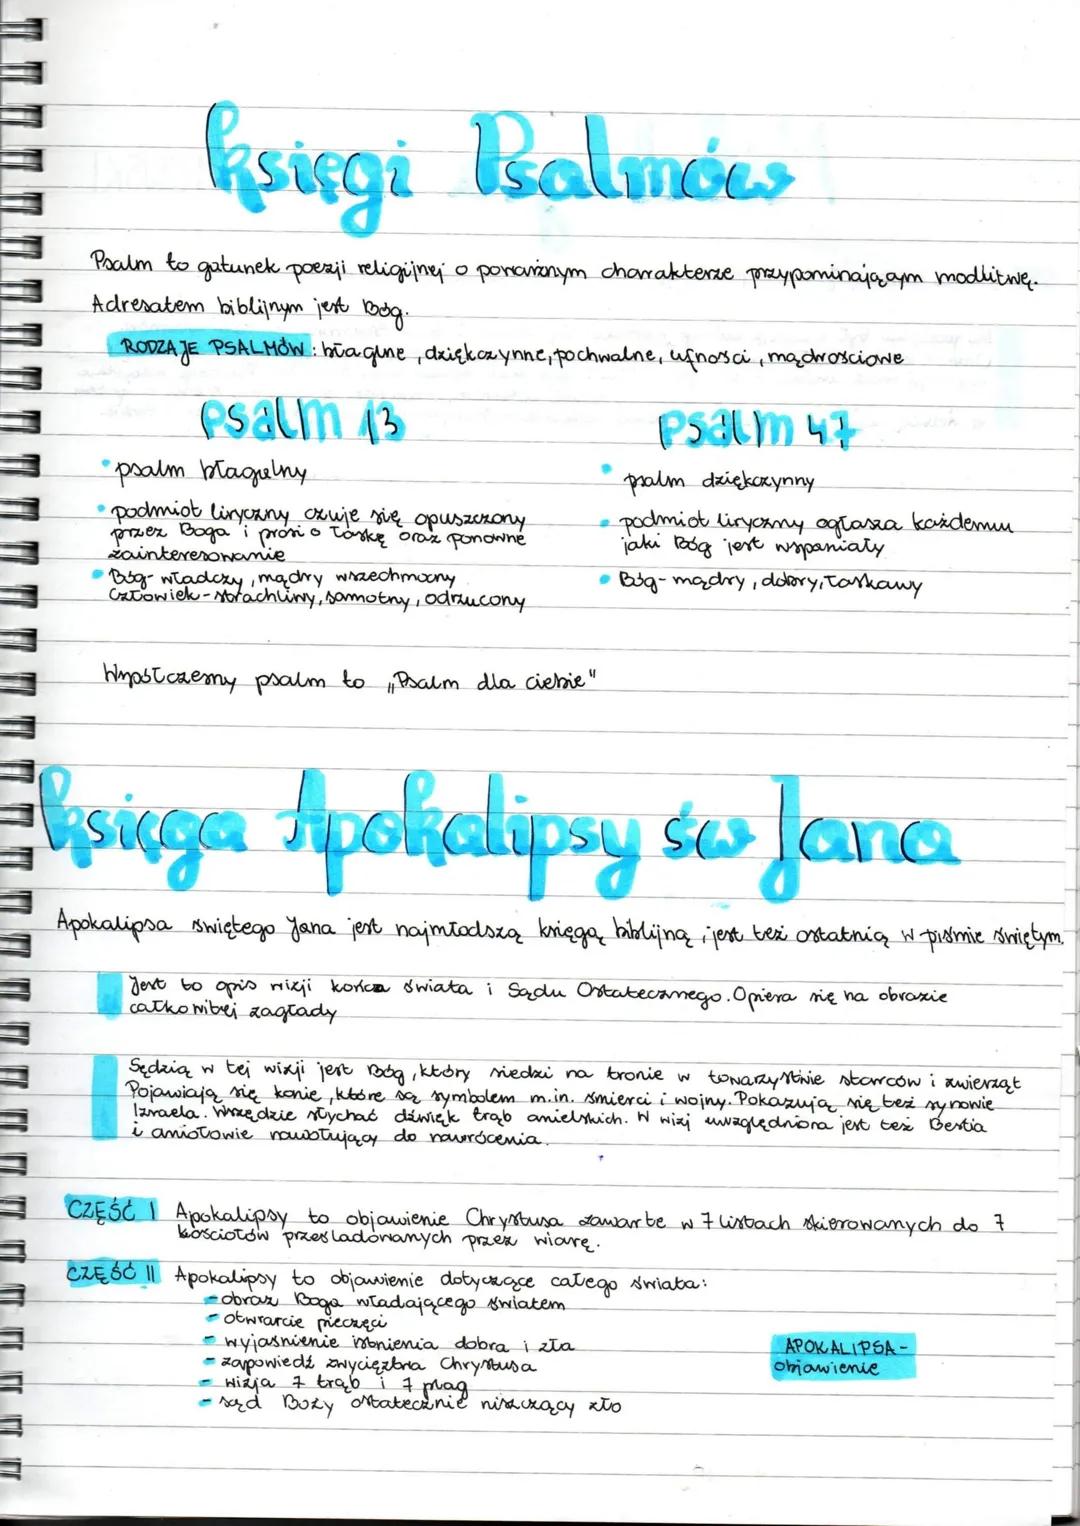 księgi Psalmów
Psalm to gatunek poezji religijnej o poważnym charakterze przypominającym modlitwę.
Adresatem biblijnym jest Bóg.
RODZAJE PSALMÓW: błaglne, dziękczynne, pochwalne, ufności, mądrościowe
psalm 13
• psalm błagalny
• podmiot liryczny czuje się opuszczony
przez Boga i prosi o łaskę oraz ponowne
zainteresowanie
• Bóg- władczy, mądry wszechmocny
Człowiek- strachliwy, samotny, odrzucony
psalm 47
• psalm dziękczynny
• podmiot liryczny ogłasza każdemu
jaki Bóg jest wspaniały
• Bóg- mądry, dobry, łaskawy
Współczesny psalm to „Psalm dla ciebie"
księga Apokalipsy św Jana
Apokalipsa świętego Jana jest najmłodszą księgą biblijną, jest też ostatnią w piśmie świętym.
Jest to opis wizji końca świata i Sądu Ostatecznego. Opiera się na obrazie
całkowitej zagłady
Sędzią w tej wizji jest Bóg, który siedzi na tronie w towarzystwie starców i zwierząt
Pojawiają się konie, które są symbolem m.in. śmierci i wojny. Pokazują się też synowie
Izraela. Wszędzie słychać dźwięk trąb anielskich. W wizj uwzględniona jest też Bestia
i aniołowie nawołujący do nawrócenia.
CZĘŚĆ I Apokalipsy to objawienie Chrystusa zawarte w 7 listach skierowanych do 7
kościołów prześladowanych przez wiarę.
CZĘŚĆ II Apokalipsy to objawienie dotyczące całego świata:
- obraz Boga władającego światem
- otwarcie pieczęci
- wyjaśnienie istnienia dobra i zła
- zapowiedź zwycięstwa Chrystusa
- wizja 7 trąb i 7 plag
- sąd Boży ostatecznie niszczący zło
APOKALIPSA-
objawienie